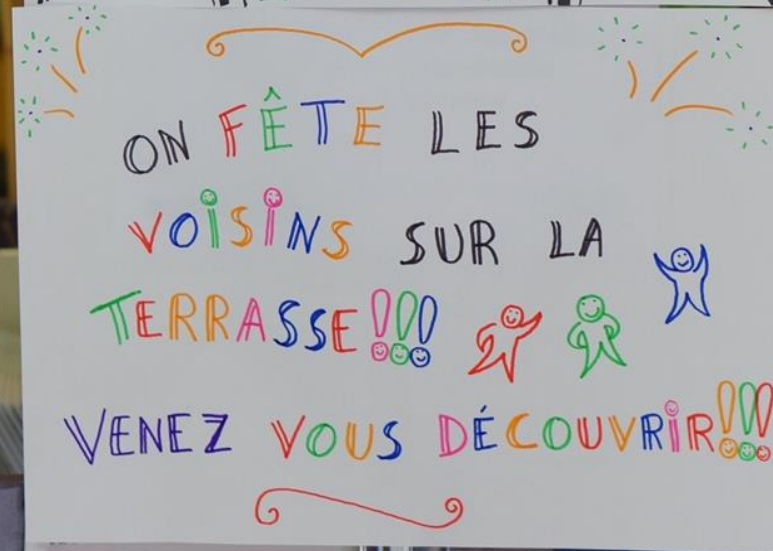 ON FÊTE LES
VOISINS SUR LA
TERRASSE!!!
VENEZ VOUS DÉCOUVRIR!!!